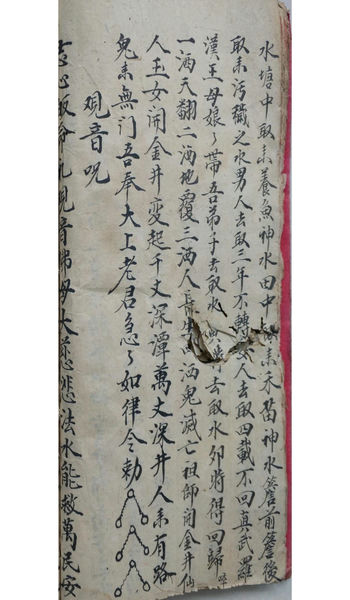 水塘中取来養魚神水田中 来禾苗神水簷前簷後
取来污穢之水男人去取三年不轉女人去取四載不回真武羅
漢王母娘々帶吾弟子去取水 去取水卯時得回歸
一洒天翻二洒地覆三洒人長生 洒鬼滅亡祖師闭金井仙
人玉女闭金井变起千丈深潭萬丈深井人来有路
鬼来無门吾奉大上老君急々如律令勅
观音呪
大慈悲法水能救萬民安